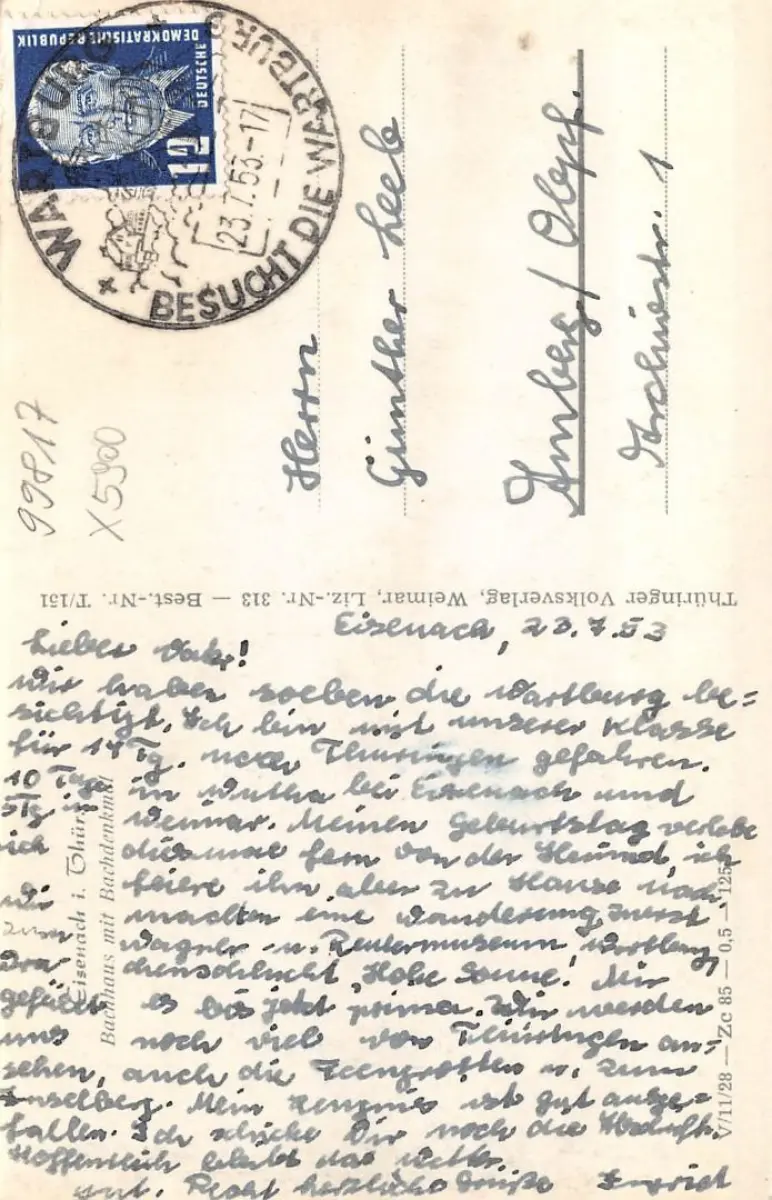 DEUTSCHE
DEMOKRATISCHE REPUBLIK
12
WARTBURG
BESUCHT DIE WARTBURG
23.7.53.-17
99817
X5900
Herrn
Günther Leeb
Amberg / Obpf.
1
Thüringer Volksverlag, Weimar, Liz.-Nr. 313 — Best.-Nr. T/151
Eisenach i. Thür.
Bachhaus mit Bachdenkmal
V/11/28 — Zc 85 — 0,5 — 125
Eisenach, 23.7.53
Lieber Vater!
Wir haben soeben die Wartburg be=
sichtigt. Ich bin mit unserer Klasse
für 14 Tg. nach Thüringen gefahren.
10 Tage in Wutha bei Eisenach und
5 Tg in Weimar. Meinen Geburtstag verlebe
ich diesmal fern von der Heimat, ich
feiere ihn aber zu Hause nach
Wir machten eine Wanderung, zuerst
zum Wagner- u. Reutermuseum, Wartburg,
Drachenschlucht, Hohe Sonne. Mir
gefällt es bis jetzt prima. Wir werden
uns noch viel von Thüringen an=
sehen, auch die Feengrotten u. zum
Inselberg. Mein Zeugnis ist gut ausge=
fallen. Ich schicke Dir noch die
Hoffentlich bleibt das Wetter
gut. Recht herzliche Grüße